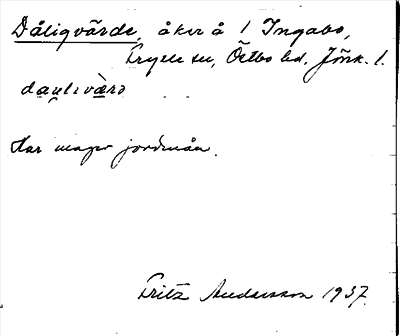 Dåligvärde, åker å 1 Ingabo,
Tryele sn, Östbo hd, Jönk. l.
dau̯lıvæ̀rd
Har mager jordmån.
Fritz Andersson 1937.